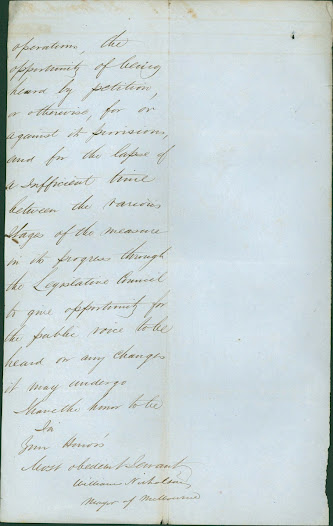 operation, the
opportunity of being
heard by petition,
or otherwise, for or
against its provisions,
and for the lapse of
a sufficient time
between the various
stages of the measure
in its progress through
the Legislative Council
to give opportunity for
the public voice to be
heard on any changes
it may undergo
I have the honor to be
Sir
Your Honor's
Most obedient Servant
William Nicholson
Mayor of Melbourne